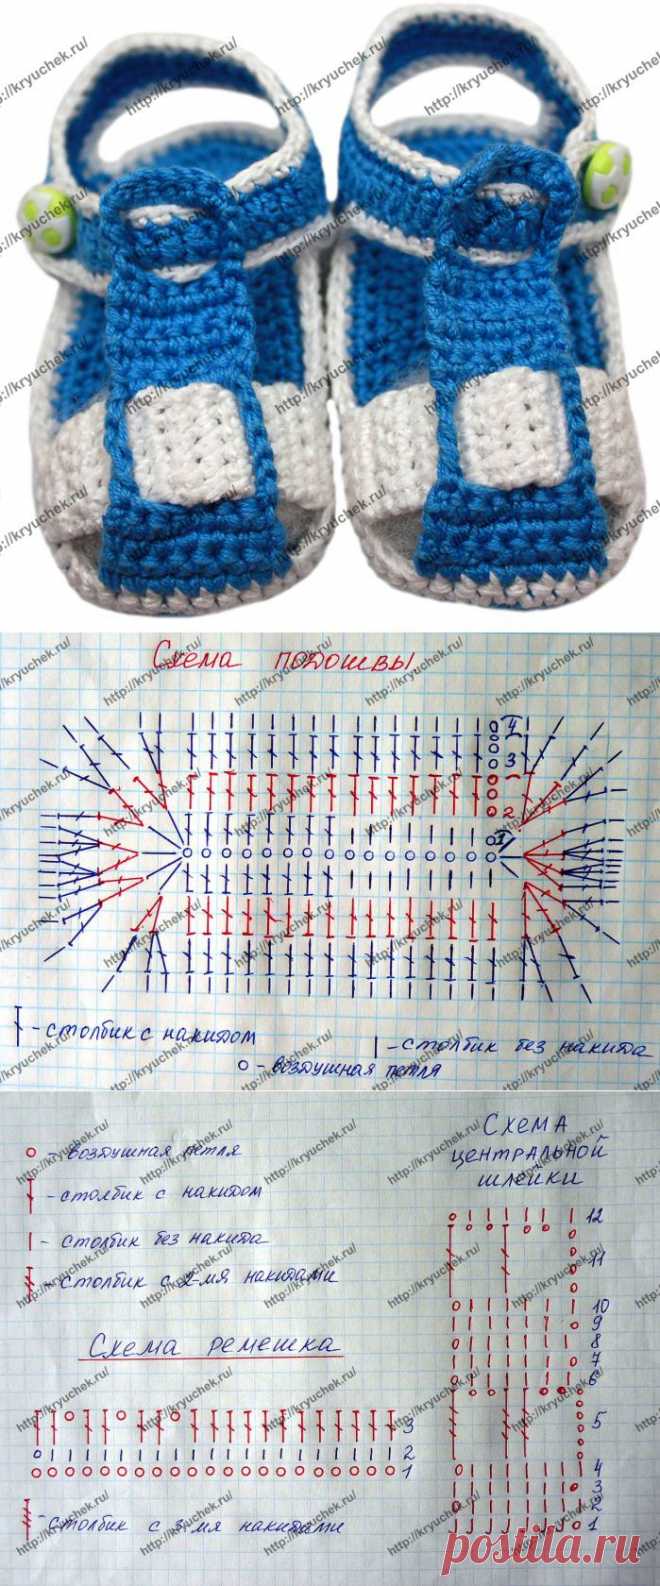 http://kryuchek.ru/
Схема подошвы
4
3
2
1
- столбик с накидом
- столбик без накида
- воздушная петля
- воздушная петля
- столбик с накидом
- столбик без накида
- столбик с 2-мя накидами
Схема ремешка
3
2
1
- столбик с 3-мя накидами
Схема
центральной
шлейки
12
11
10
9
8
7
6
5
4
3
2
1
postila.ru